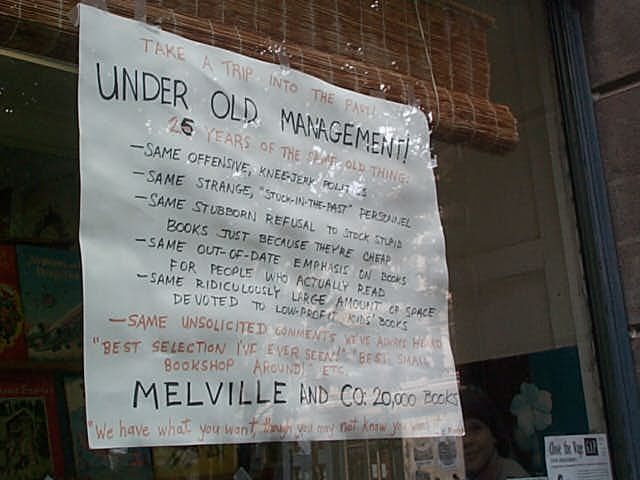 TAKE A TRIP INTO THE PAST!
UNDER OLD MANAGEMENT!
25 YEARS OF THE SAME OLD THING:
-SAME OFFENSIVE, KNEE-JERK POLITICS
-SAME STRANGE, "STUCK-IN-THE-PAST" PERSONNEL
-SAME STUBBORN REFUSAL TO STOCK STUPID
BOOKS JUST BECAUSE THEY'RE CHEAP
-SAME OUT-OF-DATE EMPHASIS ON BOOKS
FOR PEOPLE WHO ACTUALLY READ
-SAME RIDICULOUSLY LARGE AMOUNT OF SPACE
DEVOTED TO LOW-PROFIT KIDS' BOOKS
-SAME UNSOLICITED COMMENTS WE'VE ALWAYS HEARD
"BEST SELECTION I'VE EVER SEEN!" "BEST SMALL
BOOKSHOP AROUND!" ETC.
MELVILLE AND CO: 20,000 BOOKS
"We have what you want, though you may not know you want it"
Close the Wage GAP